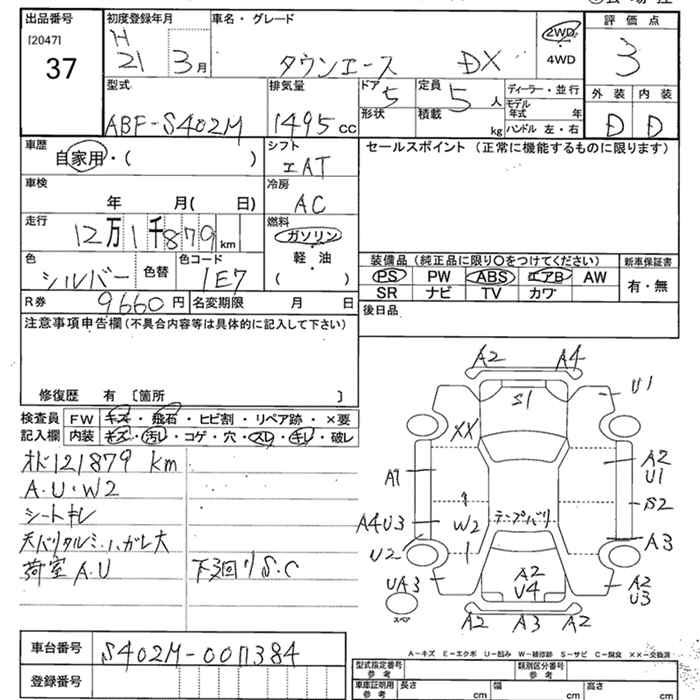 出品番号
[2047]
37
初度登録年月
H 21 3月
車名・グレード
タウンエース DX
2WD
4WD
評価点
3
型式
ABF-S402M
排気量
1495 cc
ドア 5
形状
定員 5 人
積載 kg
ディーラー・並行
モデル年式 年
ハンドル 左・右
外装 内装
D D
車歴
自家用・( )
シフト
エAT
セールスポイント (正常に機能するものに限ります)
車検
年 月( 日)
冷房
AC
走行
12万1千879km
燃料
ガソリン
軽・油
( )
色
シルバー
色替
色コード
1E7
装備品(純正品に限り○をつけてください)
新車保証書
PS PW ABS エアB AW
SR ナビ TV カワ
有・無
R券 9660円
名変期限 月 日
後日品
注意事項申告欄(不具合内容等は具体的に記入して下さい)
修復歴 有 〔箇所 〕
検査員記入欄
FW キズ・飛石・ヒビ割・リペア跡・×要
内装 キズ・汚レ・コゲ・穴・スレ・キレ・破レ
オド121879 km
A・U・W2
シートキレ
天バリタルミ・ハガレ大
荷室 A.U
下廻り S.C
A2 A4
S1
U1
XX
A1
A2
U1
S2
A4U3
W2
テープバリ
U2
A3
UA3
A2
U4
A2
U3
スペア
A2 A3 A2
車台番号 S402M-0011384
登録番号
A-キズ E-エクボ U-凹み W-補修跡 S-サビ C-腐食 XX-交換済
型式指定番号 参考
類別区分番号 参考
車庫証明用 参考
長さ cm
幅 cm
高さ cm